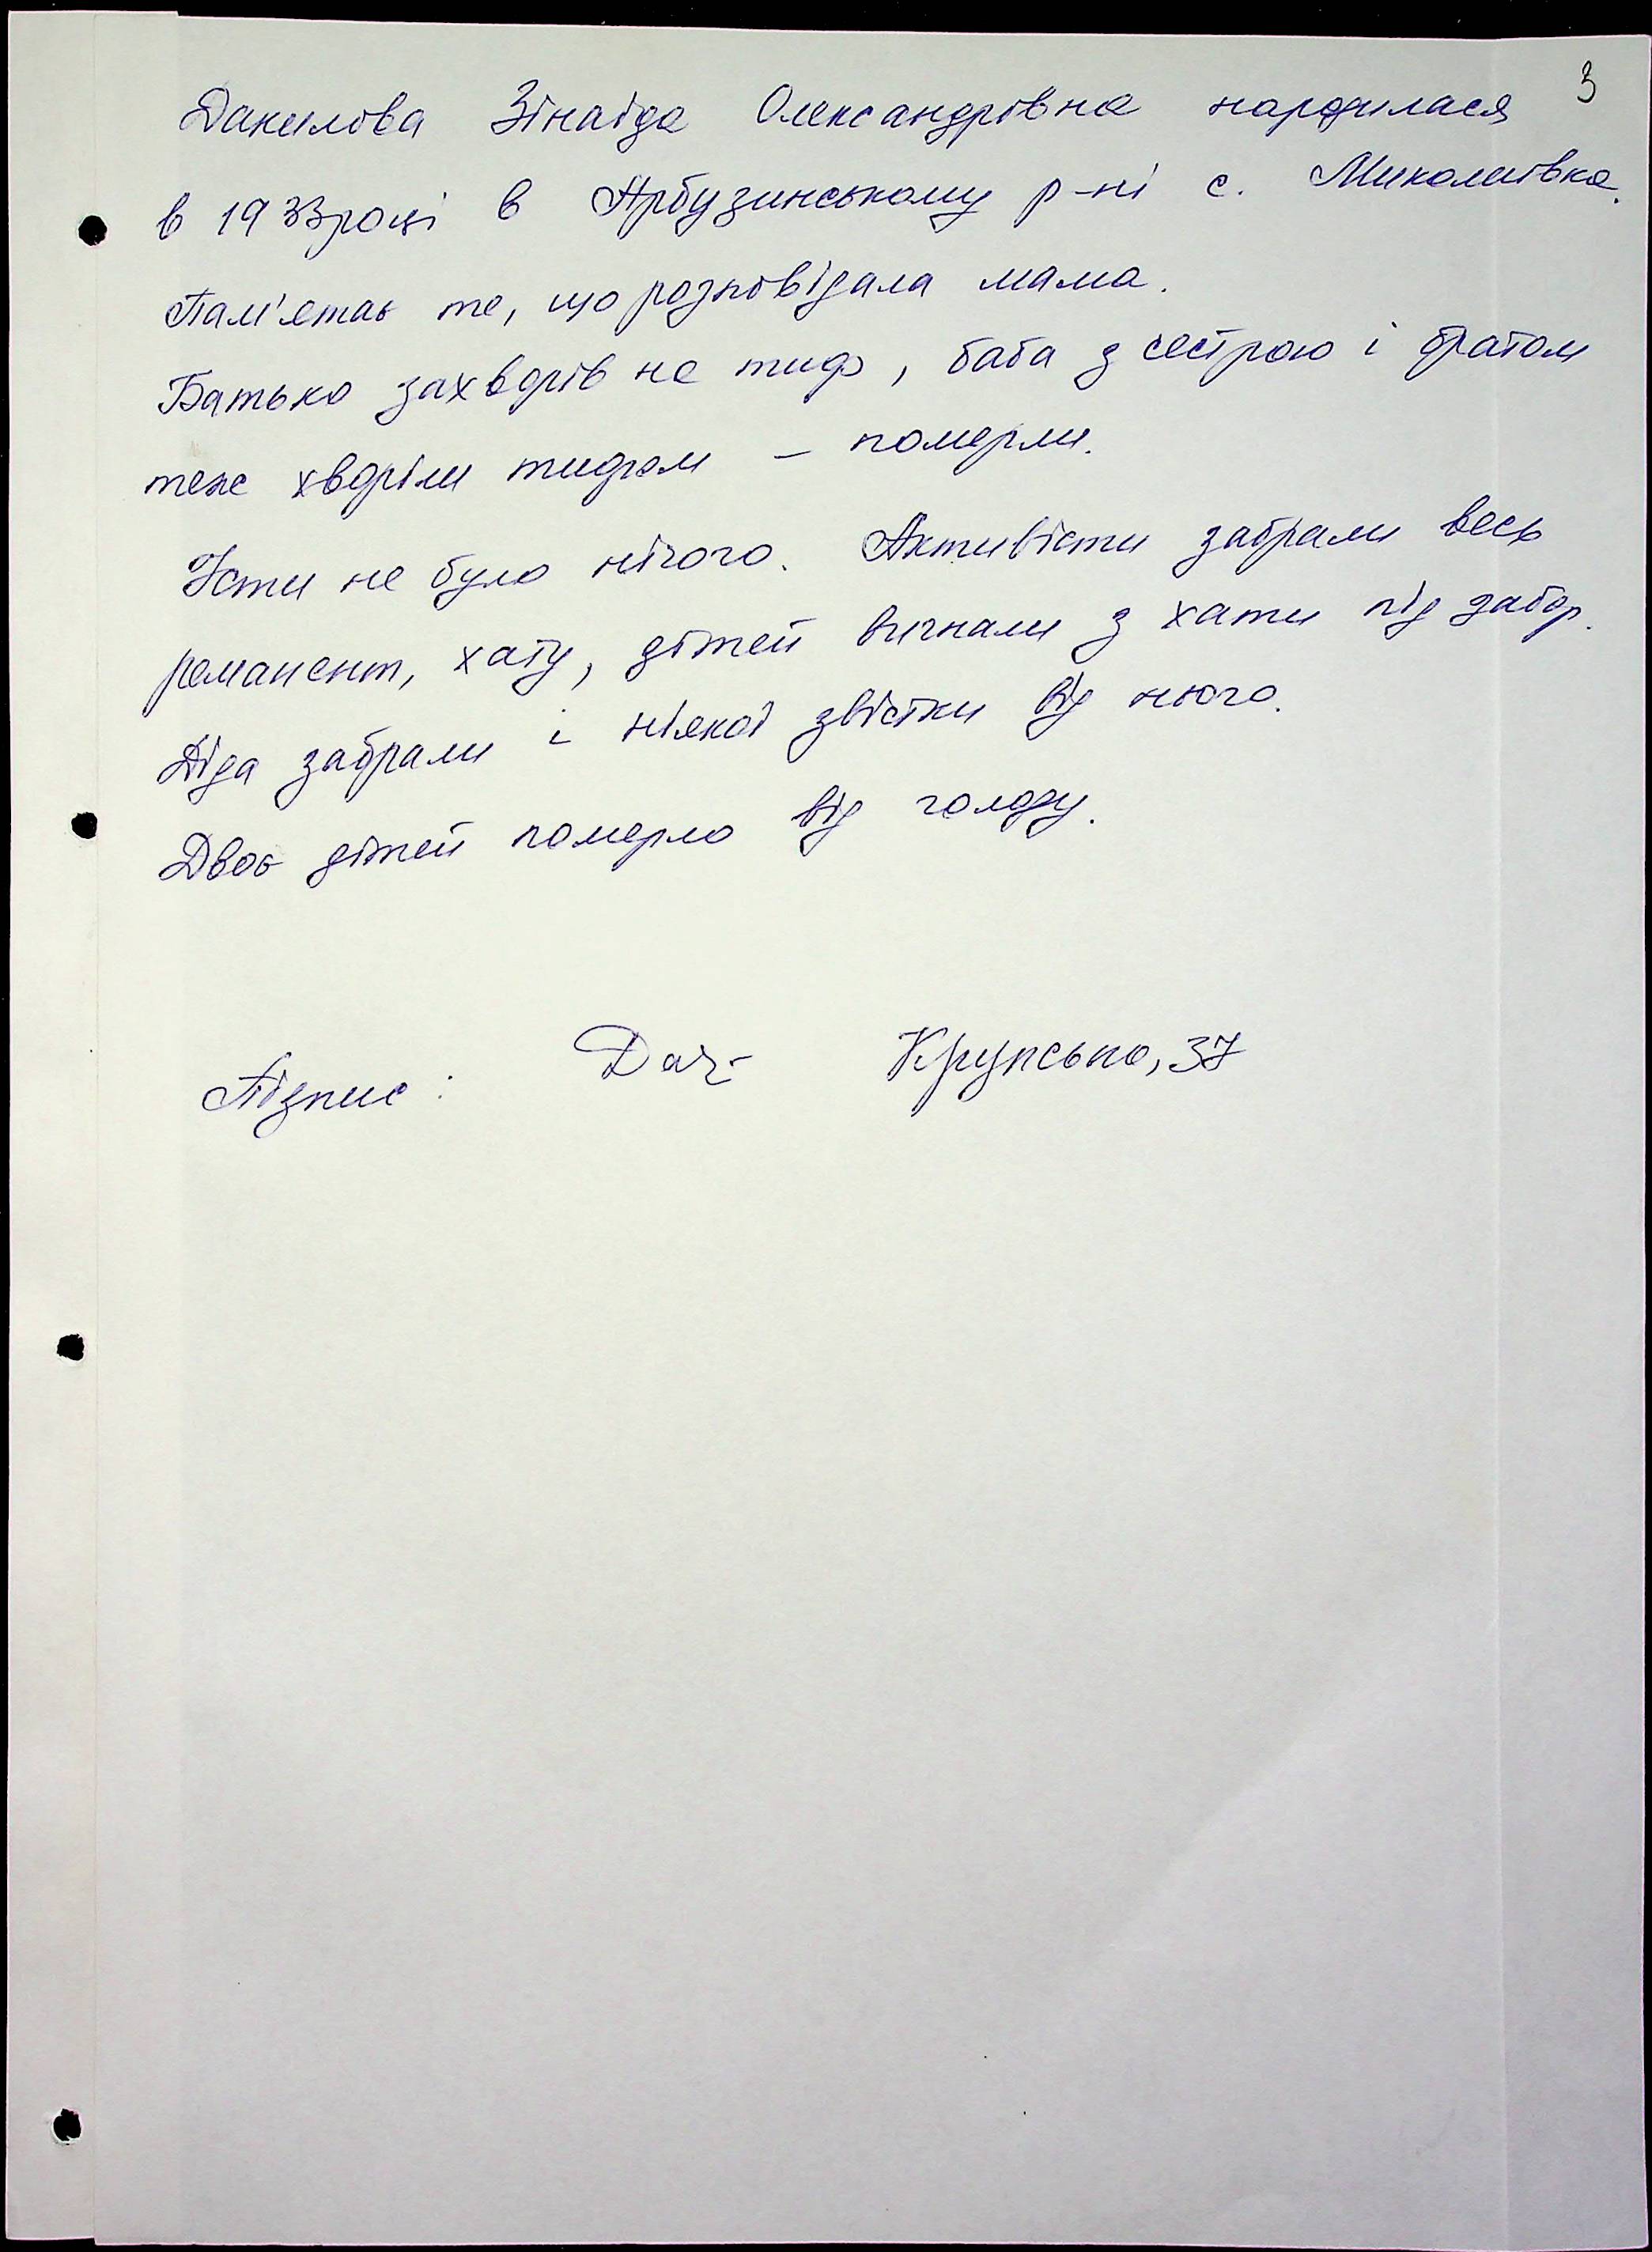 3
Данилова Зінаїда Олександрівна народилася
в 1933 році в Арбузинському р-ні с. Миколаївка.
Пам'ятає те, що розповідала мама.
Батько захворів на тиф, баба з сестрою і братом
теж хворіли тифом – померли.
Їсти не було нічого. Активісти забрали весь
реманент, хату, дітей вигнали з хати під забор.
Діда забрали і ніякої звістки від нього.
Двоє дітей померло від голоду.
Підпис: Крупська, 37